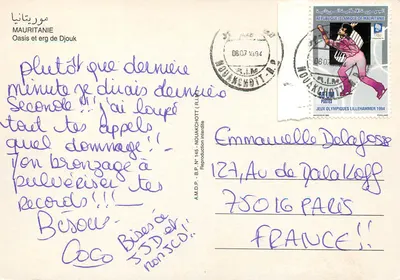 موريتانيا
MAURITANIE
Oasis et erg de Djouk
plutôt que dernière
minute je dirais dernière
seconde!!! j'ai loupé
tout tes appels
quel dommage!!
Ton bronzage à
pulvériser tes
records!!!
Bisou
Coco
Bises à
JJD et
A.M.D.P. - B.P. N° 145 - NOUAKCHOTT ( R.I.
Reproduction interdite
NOUAKCHOTT-R.P
R.I.M
REPUBLIQUE ISLAMIQUE DE MAURITANIE
JEUX OLYMPIQUES LILLEHAMMER 1994
Emmanuelle Delafosse
127, Av de
75016 PARIS
FRANCE!!